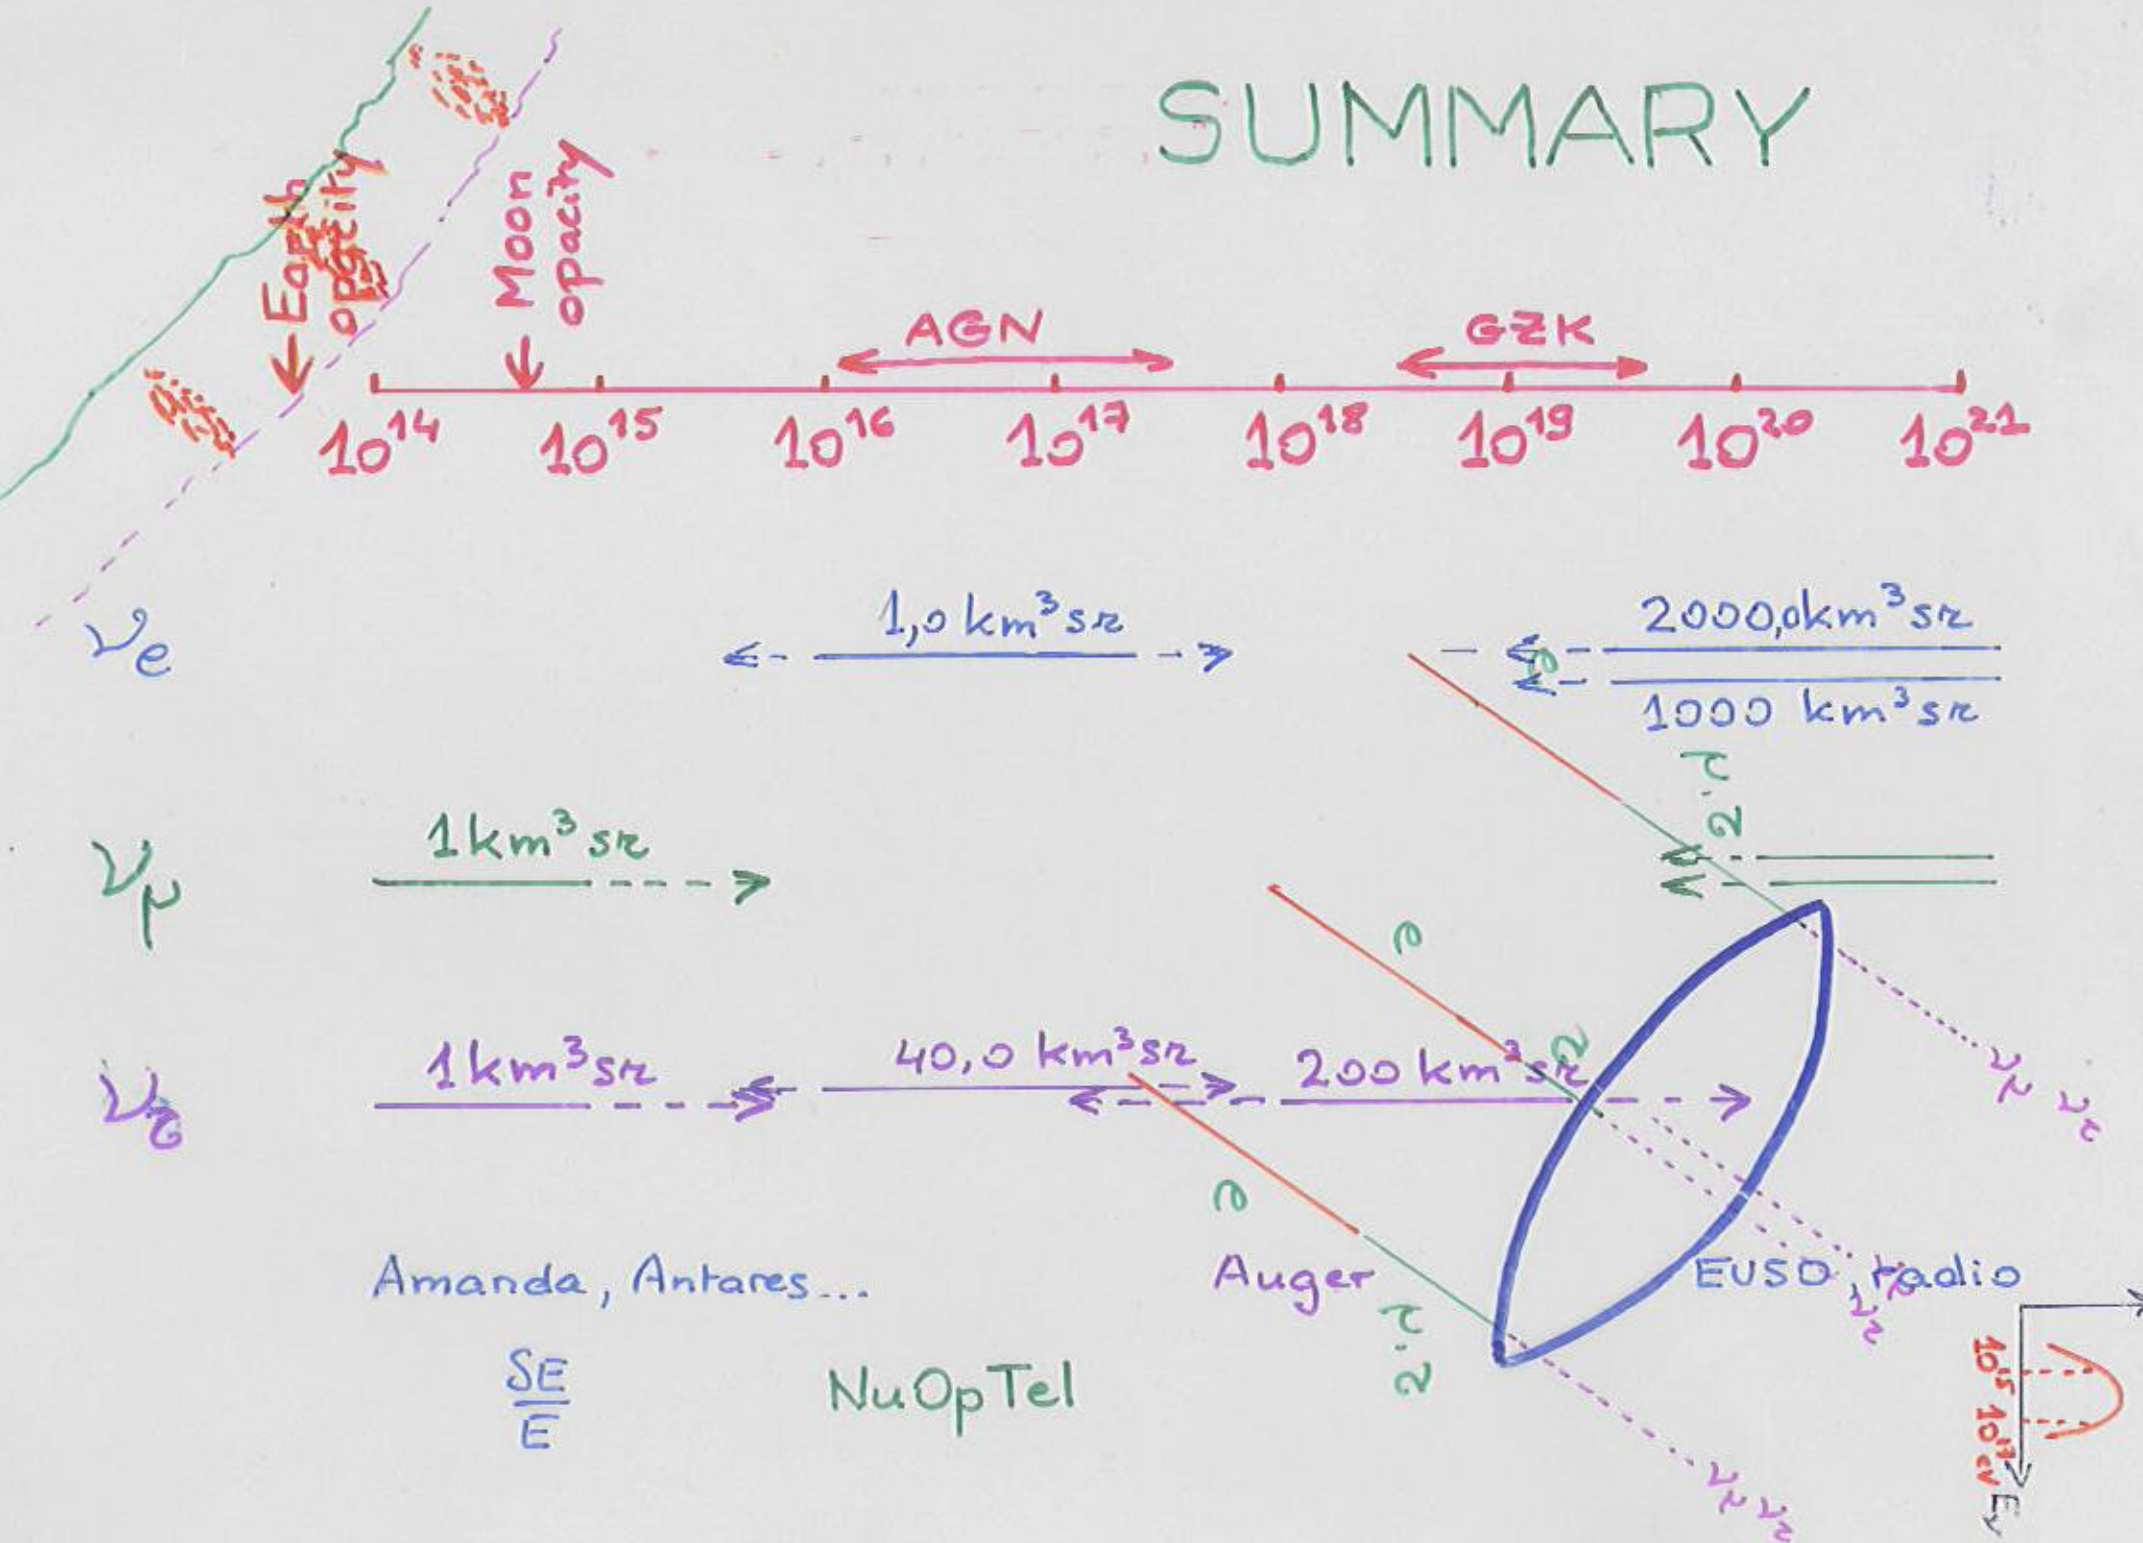 SUMMARY
Earth opacity
Moon opacity
AGN
GZK
10¹⁴ 10¹⁵ 10¹⁶ 10¹⁷ 10¹⁸ 10¹⁹ 10²⁰ 10²¹
νe
1,0 km³ sr
2000,0km³ sr
1000 km³ sr
νμ
1km³ sr
ντ
1km³ sr
40,0 km³ sr
200 km³ sr
e
μ, τ
e
τ
e
μ, τ
νμ ντ
νμ ντ
νμ ντ
Amanda, Antares...
Auger
EUSO, radio
SE
E
NuOpTel
10¹⁵ 10¹⁷ eV
Eν